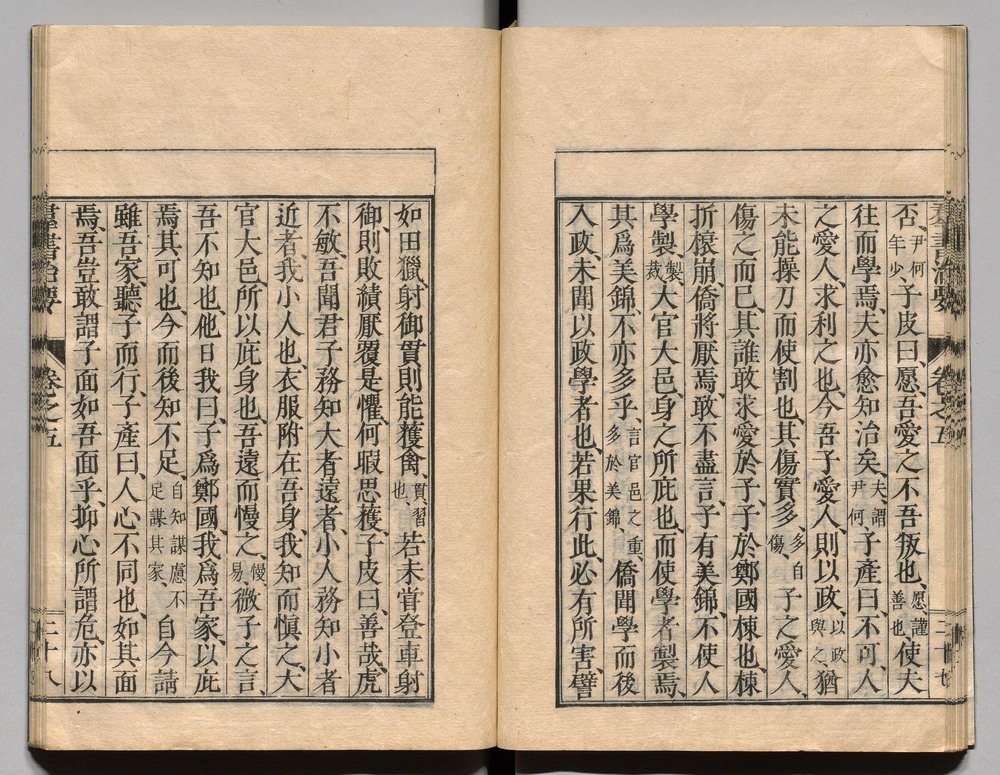 羣書治要 卷之五 二十七
否、尹何年少、子皮曰、愿、吾愛之、不吾叛也、愿、謹善也、使夫
往而學焉、夫亦愈知治矣、夫、謂尹何、子產曰、不可、人
之愛人、求利之也、今吾子愛人、則以政、以政與之、猶
未能操刀而使割也、其傷實多、多自傷、子之愛人、
傷之而已、其誰敢求愛於子、子於鄭國棟也、棟
折榱崩、僑將厭焉、敢不盡言、子有美錦、不使人
學製、製裁、大官大邑、身之所庇也、而使學者製焉、
其爲美錦、不亦多乎、言官邑之重、多於美錦、僑聞學而後
入政、未聞以政學者也、若果行此、必有所害、譬
如田獵、射御貫則能獲禽、貫、習也、若未甞登車射
御、則敗績厭覆是懼、何暇思獲、子皮曰、善哉、虎
不敏、吾聞君子務知大者遠者、小人務知小者
近者、我小人也、衣服附在吾身、我知而慎之、大
官大邑、所以庇身也、吾遠而慢之、慢易、微子之言、
吾不知也、他日我曰、子爲鄭國、我爲吾家、以庇
焉、其可也、今而後知不足、自知謀慮不足謀其家、自今請
雖吾家、聽子而行、子產曰、人心不同也、如其面
焉、吾豈敢謂子面如吾面乎、抑心所謂危、亦以
羣書治要 卷之五 二十八